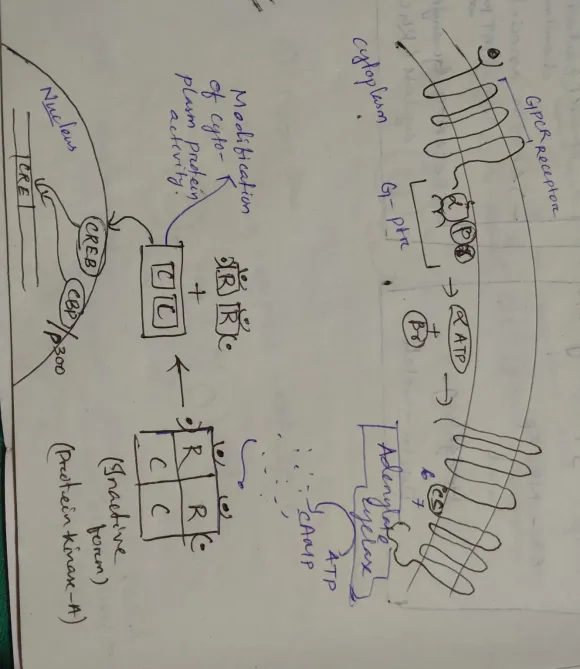 GPCR receptor
cytoplasm
α β γ
G-ptn
α ATP
+
βγ
Adenylate
cyclase
6
7
ATP
CAMP
R R
C C
(Inactive
form)
(Protein kinase-A)
R R
+
C C
Modification
of cyto-
plasm protein
activity.
Nucleus
CREB
CBP/p300
CRE